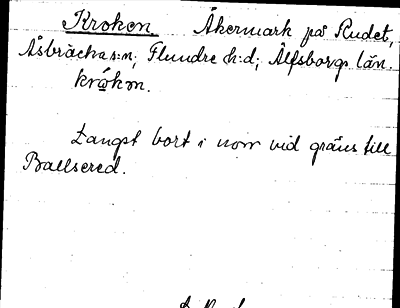 Kroken Åkermark på Rudet,
Åsbräcka s:n; Flundre h:d; Älfsborgs län.
Längst bort i norr vid gräns till
Ballsered.